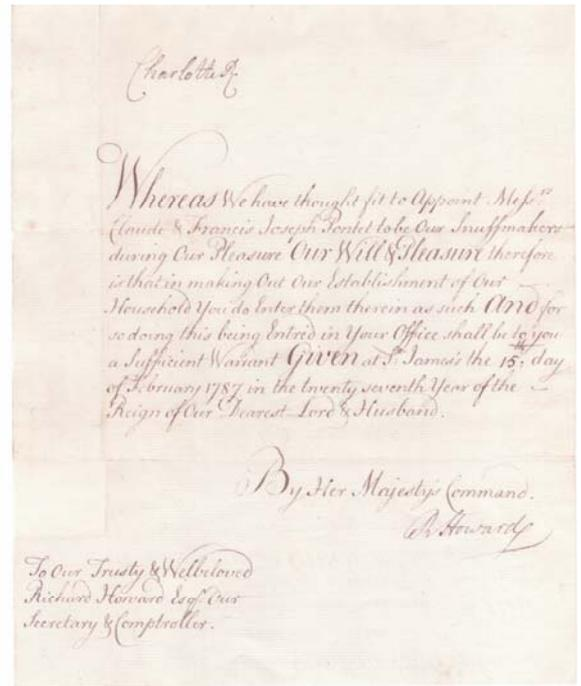 Charlotte R
Whereas We have thought fit to Appoint Mess.rs
Claude & Francis Joseph Pontet to be Our Snuffmakers
during Our Pleasure Our Will & Pleasure therefore
is that in making Out Our Establishment of Our
Household You do Enter them therein as such And for
so doing this being Entred in Your Office shall be to you
a Sufficient Warrant Given at St. James's the 15th. day
of February 1787 in the twenty seventh Year of the
Reign of Our Dearest Lord & Husband.
By Her Majesty's Command.
R Howard
To Our Trusty & Welbeloved
Richard Howard Esqr. Our
Secretary & Comptroller.